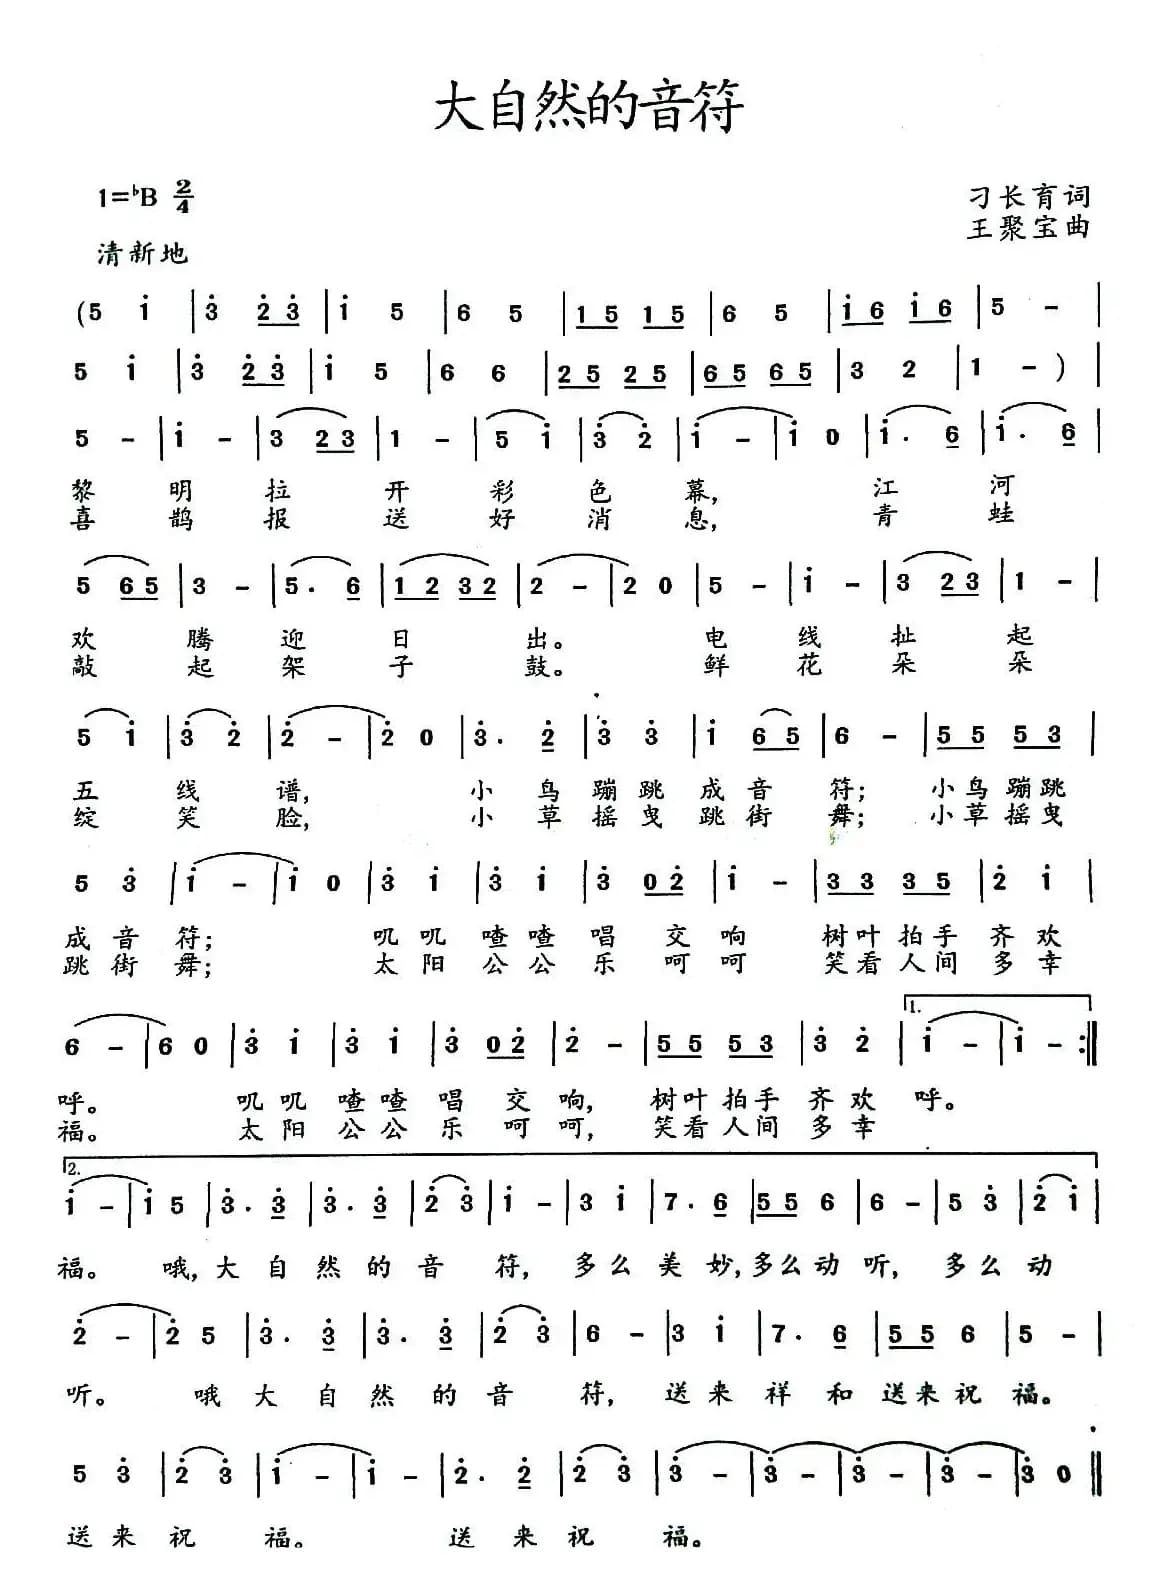 大自然的音符
1=♭B 2/4
刁长育词
王聚宝曲
清新地
(5 i̇ | 3̇ 2̇3̇ | i̇ 5 | 6 5 | 15 15 | 6 5 | i̇6 i̇6 | 5 - |
5 i̇ | 3̇ 2̇3̇ | i̇ 5 | 6 6 | 25 25 | 65 65 | 3 2 | 1 - ) |
5 - | i̇ - | 3 23 | 1 - | 5 i̇ | 3̇ 2̇ | i̇ - | i̇ 0 | i̇. 6̇ | i̇. 6̇ |
黎明拉开彩色幕, 江河
喜鹊报送好消息, 青蛙
5 65 | 3 - | 5. 6 | 12 32 | 2 - | 2 0 | 5 - | i̇ - | 3 23 | 1 - |
欢腾迎日出。 电线扯起
敲起架子鼓。 鲜花朵朵
5 i̇ | 3̇ 2̇ | 2̇ - | 2̇ 0 | 3̇. 2̇ | 3̇ 3̇ | i̇ 65 | 6 - | 55 53 |
五线谱, 小鸟蹦跳成音符; 小鸟蹦跳
绽笑脸, 小草摇曳跳街舞; 小草摇曳
5 3̇ | i̇ - | i̇ 0 | 3̇ i̇ | 3̇ i̇ | 3̇ 02̇ | i̇ - | 3̇3̇ 3̇5̇ | 2̇ i̇ |
成音符; 叽叽喳喳唱交响 树叶拍手齐欢
跳街舞; 太阳公公乐呵呵 笑看人间多幸
1.
6 - | 6 0 | 3̇ i̇ | 3̇ i̇ | 3̇ 02̇ | 2̇ - | 55 53 | 3̇ 2̇ | i̇ - | i̇ - :||
呼。 叽叽喳喳唱交响, 树叶拍手齐欢呼。
福。 太阳公公乐呵呵, 笑看人间多幸
2.
i̇ - | i̇ 5 | 3̇. 3̇ | 3̇. 3̇ | 2̇ 3̇ | i̇ - | 3 i̇ | 7. 6 | 55 6 | 6 - | 5 3̇ | 2̇ i̇ |
福。 哦,大自然的音符, 多么美妙,多么动听, 多么动
2̇ - | 2̇ 5 | 3̇. 3̇ | 3̇. 3̇ | 2̇ 3̇ | 6 - | 3 i̇ | 7. 6 | 55 6 | 5 - |
听。 哦大自然的音符, 送来祥和送来祝福。
5 3̇ | 2̇ 3̇ | i̇ - | i̇ - | 2̇. 2̇ | 2̇ 3̇ | 3̇ - | 3̇ - | 3̇ - | 3̇ - | 3̇ 0 ||
送来祝福。 送来祝福。